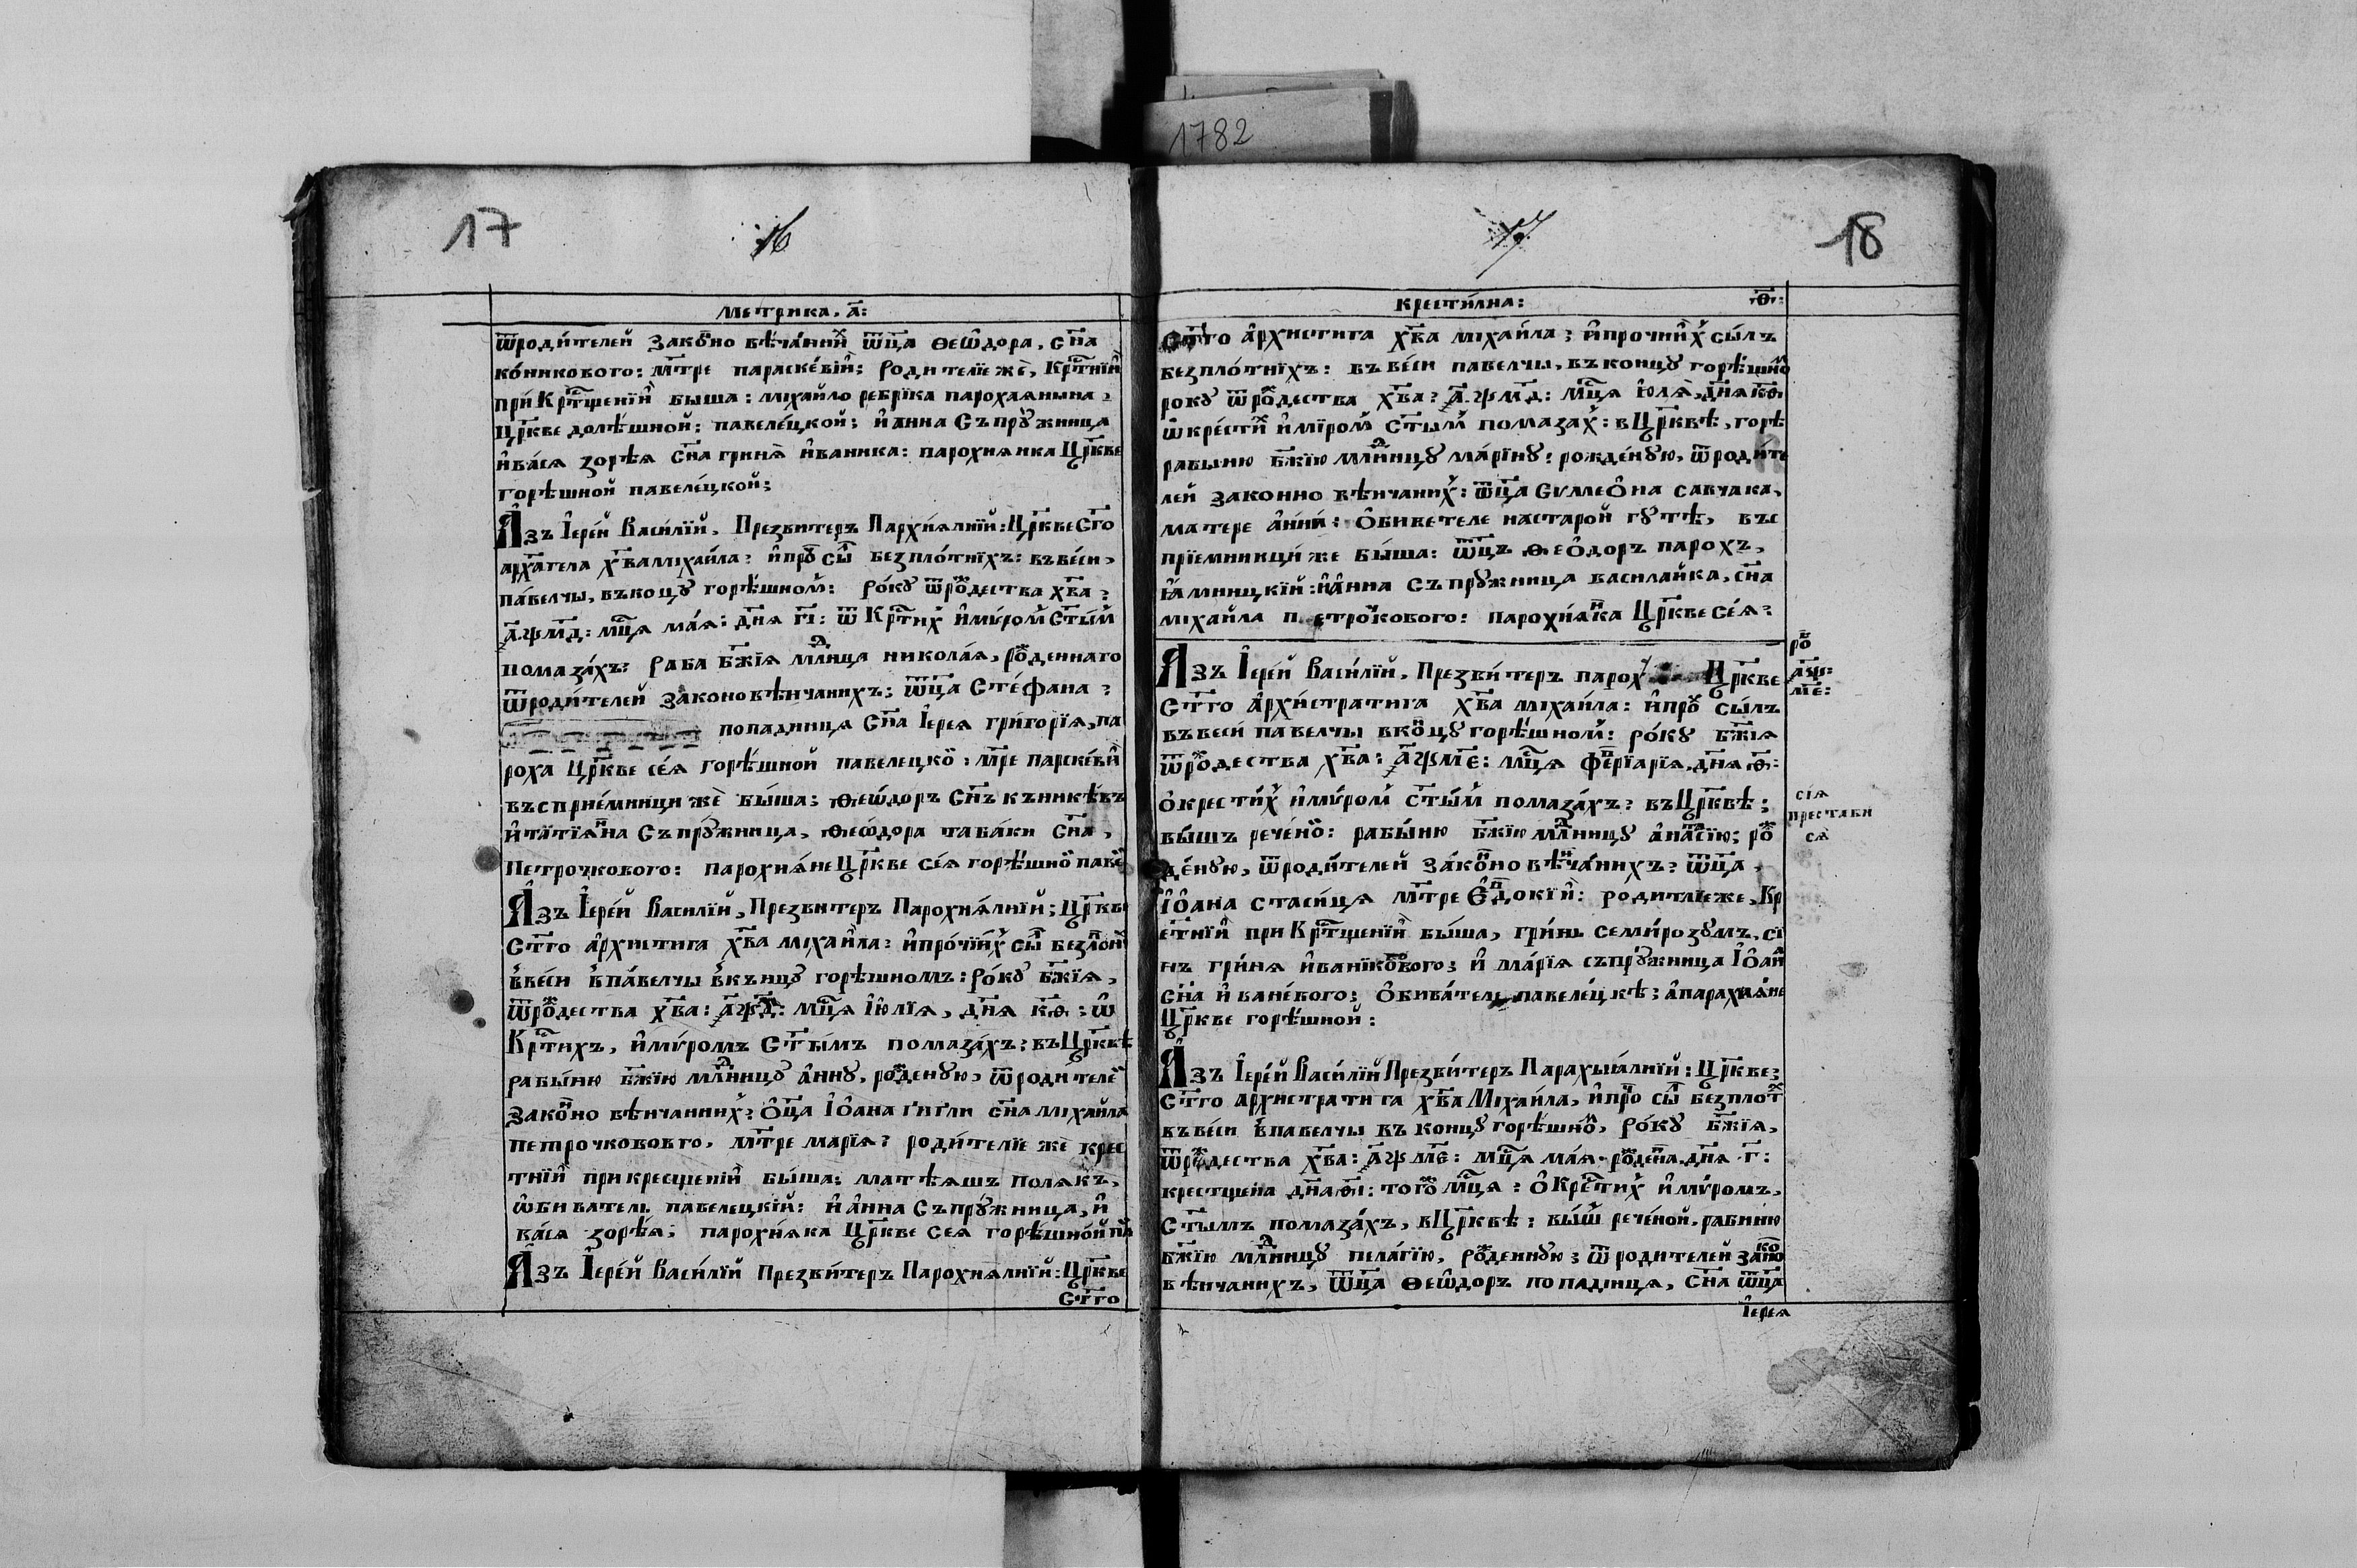 1782
17
16
Метрика. а҃:
ѿроди́телей зако́но вѣча́ний ѿц҃а Ѳеѡ́дора, сн҃а
ко́никового: мт҃ре параске́вій: родителїе жѐ, Крⷭ҇тнїи
при́ Крⷭ҇щенїи быша: міха́йло ребріка парохаянына,
Цр҃кве долѣшной: павеле́цкой: и҆ анна Съпрꙋжница
и҆ва́ся зорѣя сн҃а гриня̀ и҆ваника: парохиянка Цр҃кве
горѣшной павеле́цкой;
А҆зъ І҆ере́й Васи́лїй, Презвитеръ Пархия́лнїй: Цр҃кве Ст҃го
арха҃гела хв҃а міхаи́ла: и҆ про́ сы́ безпло́тнїхъ: въ ве́си,
па́велчы, въ коцꙋ горѣшном: ро́кꙋ ѿро́дества хв҃а:
а҃ѱм҃д: мц҃я ма́я: дн҃я г҃і: ѿ Крⷭ҇тих и҆мѵ́ром Ст҃ы́м
помаза́хъ: раба бж҃ія мл҃дница никола́я, ро́деннаго
ѿроди́телей законовѣнчанихъ: ѿц҃а Сте́фана:
попадница сн҃а І҆ерея григорїя, па
роха Цр҃кве се́я горѣшной павелецко: мт҃ре парске́вїи
въсприе́мници жѐ бы́ша: Ѳеѡ́доръ сн҃ъ къникѣвъ
и҆ татїя́на Съпрꙋжница, Ѳеѡ́дора табаки сн҃а,
Петрочкового: парохия́не Цр҃кве се́я горѣшно́ паве
А҆зъ І҆ере́й Василїй, Презвитеръ Парохия́лнїй: Цр҃кве
Ст҃го а҆рхистига хв҃а міхаи́ла: и҆про́чїих сы́ безпло́
в ве́си в па́велчы в кънцꙋ горѣшномъ: ро́кꙋ бж҃ія,
ѿро́дества хв҃а: а҃ѱм҃д: мц҃я І҆ю́лїя, дн҃я к҃ѳ: ѡ҆
Крⷭ҇тихъ, и҆мѵ́ромъ Ст҃ымъ помаза́хъ: въ Цр҃квѣ
рабы́ню бж҃їю мл҃дницꙋ а́ннꙋ, ро́денꙋю, ѿроди́теле
зако́но вѣнчанних: О҆ц҃а І҆ѻ҆ана гигли сн҃а міхаи́ла
Петрочкововго, мт҃ре марїя: роди́телїе жѐ крес
тнїи при кресщенїи бы́ша: матѣяшъ Полякъ,
ѡ҆биватель павелецкїй: и҆ а҆нна Съпрꙋжница, и҆
ва́ся зорѣ́я; парохи́яка Цр҃кве сея горѣшно́й па
А҆зъ І҆ере́й Васи́лїй Презви́теръ Парохия́лнїй: Цр҃кве
Ст҃го
17
18
Крести́лна: ѳ҃:
Ст҃го а҆рхистига хв҃а міхаи́ла: и҆прочиих сы́лъ
безпло́тнїхъ: въ ве́си павелчы, въ концꙋ горѣшно
рокꙋ ѿро́дества хв҃а: а҃.ѱм҃д: мц҃я ю҆ля̀, дн҃я к҃ѳ.
ѡ҆кре́сти и҆мїром Ст҃ым помазах: в Цр҃квѣ, горѣ
рабыню бж҃їю мл҃дницꙋ ма́рїнꙋ: рожде́нꙋю, ѿроди́те
лей законно вѣнчаних: ѿц҃а Сѵмео́на савчака,
матере а҆нни́: О҆бивителе на старой гꙋтѣ, въс
прїемници же бы́ша: ѿц҃ъ Ѳео́доръ парохъ,
Ямницкїй: и҆ а҆нна съпрꙋжница василайка, сн҃а
міхаи́ла петро́кового: парохия́нка Цр҃кве се́я:
А҆зъ І҆ере́й Васи́лїй, Презви́теръ парох Цр҃кве
Ст҃го а҆рхи́стратига хв҃а міхаи́ла: и҆про́ сы́лъ
въ веси́ павелчы в ко́цꙋ горѣшном: ро́кꙋ бж҃ія
ѿро́дества хв҃а: а҃ѱм҃є: мц҃я фе́рїарїя, дн҃я ѳ҃:
о҆крести́х и҆мѵ́ром ст҃ы́м помаза́хъ: въ Цр҃квѣ;
вы́шъ рече́но: рабы́ню бж҃їю мл҃дницꙋ а҆наста́сїю; ро́
де́нꙋю, ѿроди́телей зако́но вѣнча́нихъ: ѿц҃а,
І҆ѻ҆ана стаси́ця мт҃ре Е҆вдокїи: родитлїеже, Кр
е́тнїи при Крⷭ҇щенїи бы́ша, гри́нь семи́розꙋмъ, сї
нъ гри́ня и҆ванїковово; и҆ ма́рїя съпрꙋжница І҆ѻ҆ан
сн҃а и҆ване́вого; О҆бива́тель павеле́цкѣ: а҆парахия́не
Цр҃кве горѣшной:
А҆зъ І҆ере́й Васи́лїй Презви́теръ Парахыа́лнїй: Цр҃кве:
Ст҃го архистратига хв҃а Міхаи́ла, и҆про́ сы́ безпло́т
въ ве́си в павелчы въ концꙋ горѣшно, ро́кꙋ бж҃ія,
ѿро́дества хв҃а: а҃ѱм҃є: мц҃я ма́я. ро́дена дн҃я г҃:
крестщена дн҃я ѳ҃і: того́ мц҃я: О҆Крⷭ҇тих и҆мѵ́ромъ,
Ст҃ымъ помаза́хъ, в Цр҃квѣ: вы́ш рече́ной, рабиню
бж҃їю мл҃дницꙋ пела́гїю, ро́деннꙋю: ѿродителей зако́но
вѣнчанихъ, ѿц҃а Ѳеѡ́доръ попадиця, сн҃а ѿц҃а
І҆ерея
ро́
а҃ѱ:
м҃є:
сія
престави
ся̀